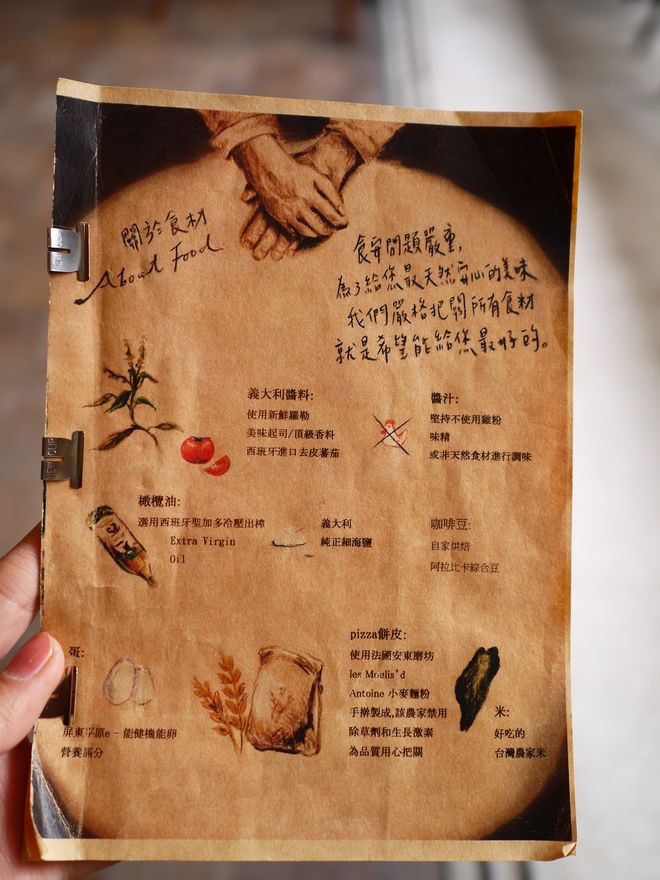 關於食材
About Food
食安問題嚴重,
為了給您最天然安心的美味
我們嚴格把關所有食材
就是希望能給您最好的。
義大利醬料:
使用新鮮羅勒
美味起司/頂級香料
西班牙進口去皮蕃茄
醬汁:
堅持不使用雞粉
味精
或非天然食材進行調味
橄欖油:
選用西班牙聖加多冷壓出榨
Extra Virgin
Oil
義大利
純正細海鹽
咖啡豆:
自家烘焙
阿拉比卡綜合豆
蛋:
屏東 e - 能健機能卵
營養滿分
pizza餅皮:
使用法國安東磨坊
les Moulis'd
Antoine 小麥麵粉
手擀製成,該農家禁用
除草劑和生長激素
為品質用心把關
米:
好吃的
台灣農家米
NEW CLIP